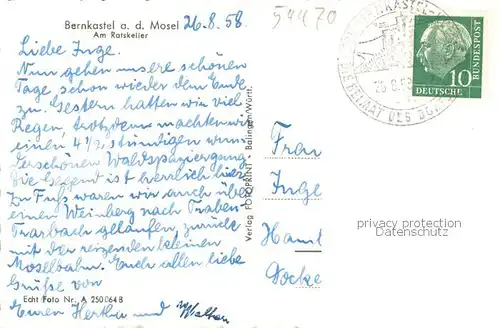 Bernkastel a. d. Mosel 26.8.58
Am Ratskeller
54470
Liebe Inge.
Nun gehen unsre schönen
Tage, schon wieder dem Ende
zu. Gestern hatten wir viel
Regen, trotzdem machten wir
einen 4 1/2 stündigen wun-
derschönen Waldspaziergang.
Die Gegend ist herrlich hier.
Zu Fuß waren wir auch über
einen Weinberg nach Traben-
Trarbach gelaufen, zurück
mit der reizenden kleinen
Moselbahn. Euch allen liebe
Grüße von
Echt Foto Nr. A 250064B
Euren Hertha und
Verlag FOTOPRINT Balingen/Württ.
BERNKASTEL-
26.8.58
DIE HEIMAT DES
10
DEUTSCHE
BUNDESPOST
Frau
Inge
privacy protection
Datenschutz